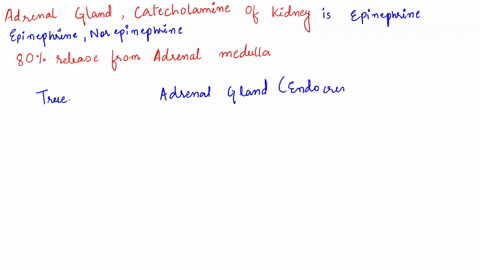 Adrenal Gland, Catecholamine Of Kidney is Epinephrine
Epinephrine, Norepinephrine
80% release from Adrenal medulla
True. Adrenal Gland (Endocre